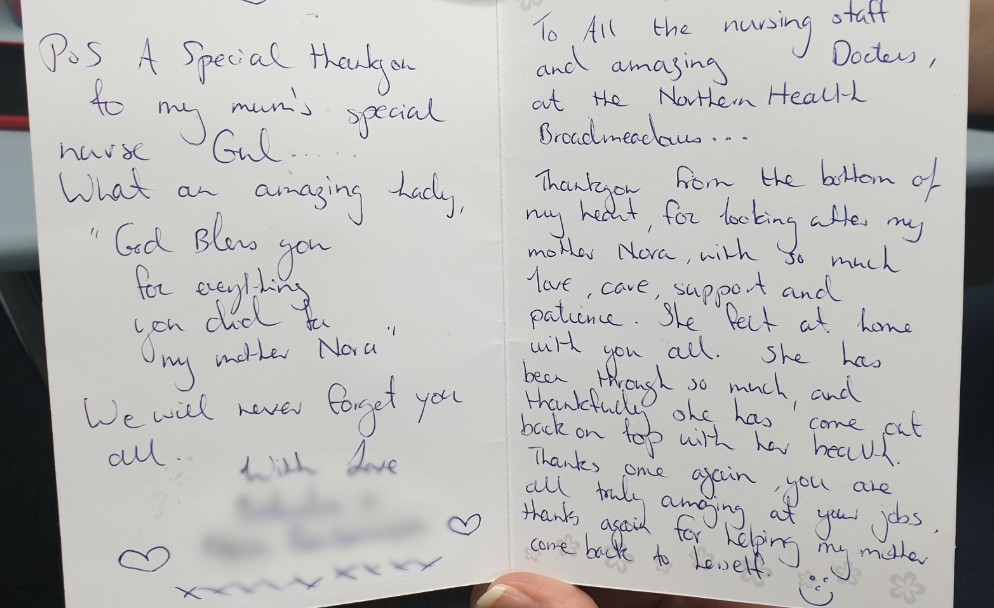 P.S A Special thankyou
to my mum's special
nurse Gul.....
What an amazing Lady,
"God Bless you
for everything
you did for
my mother Nora"
We will never forget you
all.
With Love
x x x x x x x x
To All the nursing staff
and amazing Doctors,
at the Northern Health
Broadmeadows...
Thankyou from the bottom of
my heart, for looking after my
mother Nora, with so much
love, care, support and
patience. She felt at home
with you all. She has
been through so much, and
thankfully she has come out
back on top with her health.
Thanks once again, you are
all truly amazing at your jobs,
thanks again for helping my mother
come back to herself.